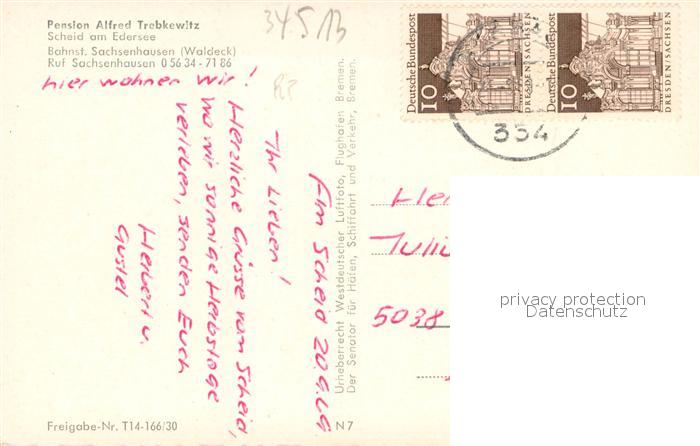 Pension Alfred Trebkewitz
Scheid am Edersee
Bahnst. Sachsenhausen (Waldeck)
Ruf Sachsenhausen 0 56 34 - 71 86
hier wohnen wir!
34513
RP
Am Scheid 20.9.69
Ihr Lieben!
Herzliche Grüsse vom Scheid,
wo wir sonnige Herbsttage
verleben, senden Euch
Herbert u.
Gustel
Urheberrecht Westdeutscher Luftfoto, Flughafen Bremen.
Der Senator für Häfen, Schiffahrt und Verkehr, Bremen.
Freigabe-Nr. T14-166/30
N 7
Deutsche Bundespost
10
DRESDEN/SACHSEN
Deutsche Bundespost
10
DRESDEN/SACHSEN
354
5038
privacy protection
Datenschutz